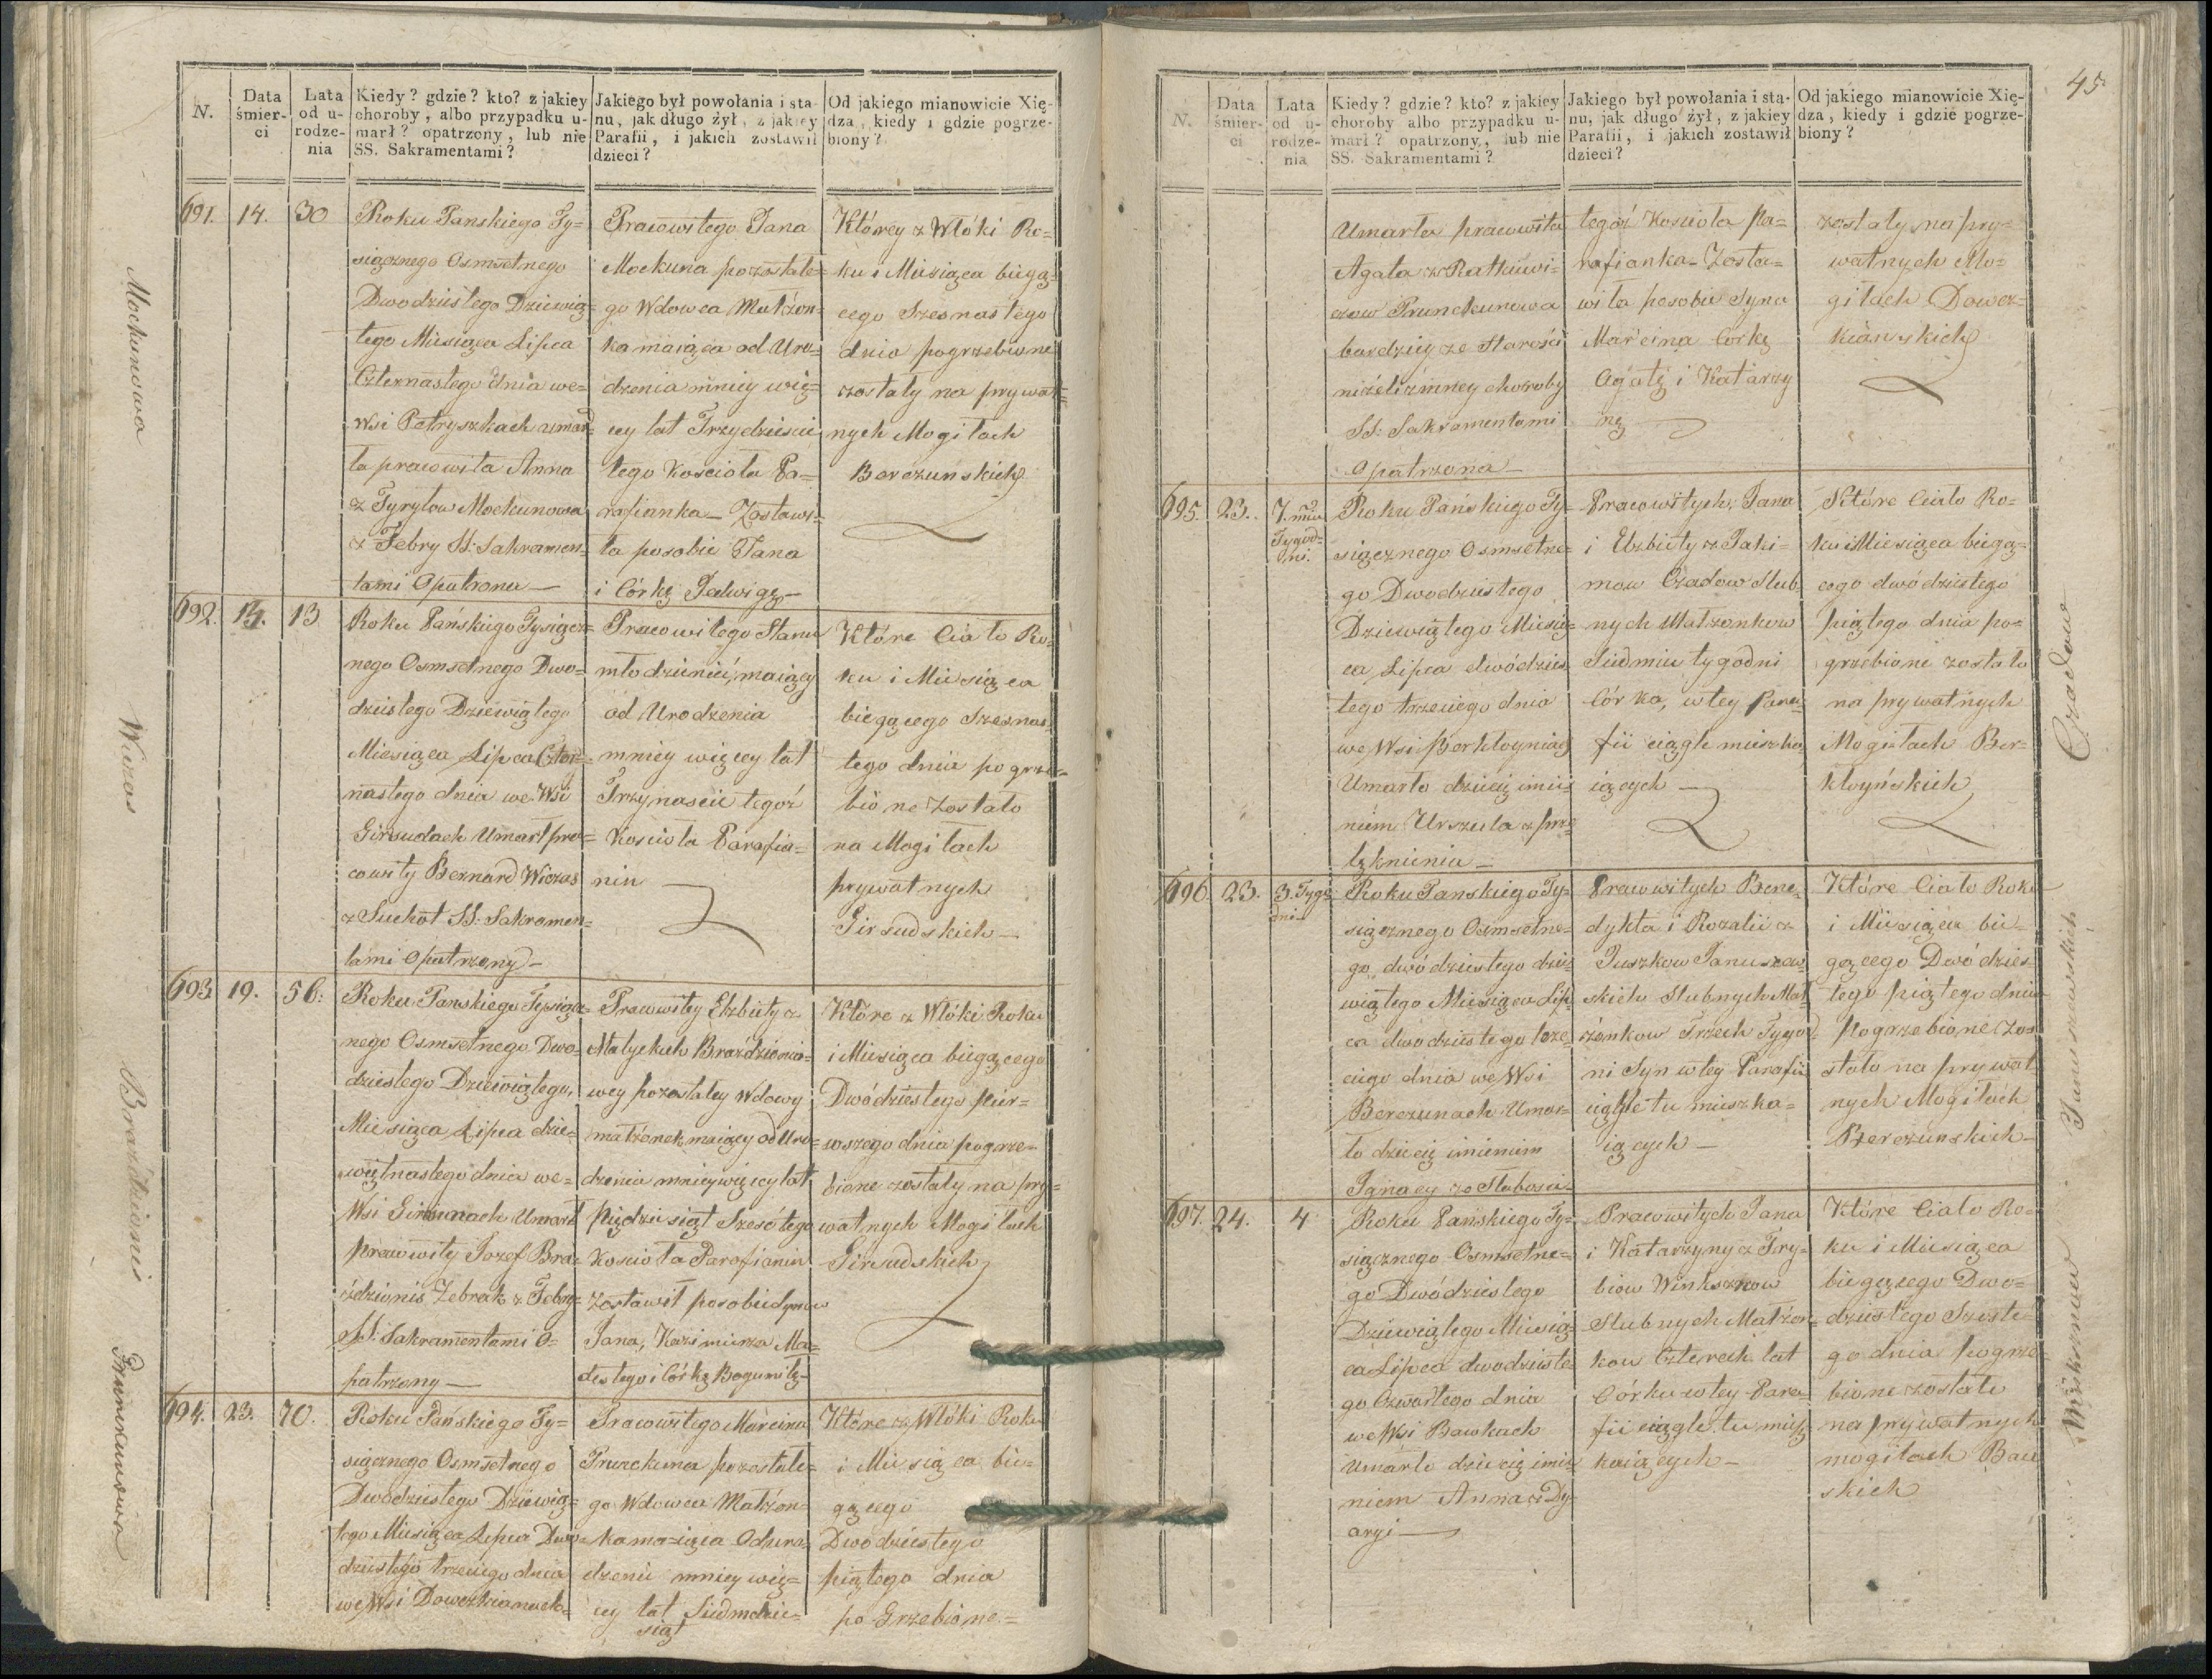 N.
Data
śmier-
ci
Lata
od u-
rodze-
nia
Kiedy? gdzie? kto? z jakiey
choroby, albo przypadku u-
marł? opatrzony, lub nie
SS. Sakramentami?
Jakiego był powołania i sta-
nu, jak długo żył, z jakiey
Parafii, i jakich zostawił
dzieci?
Od jakiego mianowicie Xię-
dza, kiedy i gdzie pogrze-
biony?
691.
14.
30
Roku Panskiego Ty=
siącznego Osmsetnego
Dwodziestego Dziewią=
tego Miesiąca Lipca
Czternastego dnia we=
Wsi Petryszkach umar=
ła pracowita Anna
z Tyrylow Mockunowa
z Febry SS: Sakramen=
tami Opatrona
Pracowitego Jana
Mockuna pozostałe=
go Wdowca Małżon=
ka maiąca od Uro=
dzenia mniey wię=
cey lat Trzydzieście
tego Kościoła Pa=
rafianka Zostawi=
ła posobie Jana
i Córkę Jadwigę
Którey z Włóki Ro=
ku i Miesiąca biegą=
cego Szesnastego
dnia pogrzebione
zostały na prywat=
nych Mogiłach
Berezunskich
Mockunowa
692.
14.
13
Roku Pańskiego Tysiącz=
nego Osmsetnego Dwo=
dziestego Dziewiątego
Miesiąca Lipca Czter=
nastego dnia we Wsi
Girsudach Umarł pra=
cowity Bernard Wiczas
z Suchot SS: Sakramen=
tami Opatrzony
Pracowitego Stanu
młodzieniec, maiący
od Urodzenia
mniey więcey lat
Trzynaście tegoż
Kościoła Parafia=
nin
Które Ciało Ro=
ku i Miesiąca
biegącego Szesnas=
tego dnia pogrze=
bione Zostało
na Mogiłach
prywatnych
Girsudskich
Wiczas
693
19.
56:
Roku Panskiego Tysiącz=
nego Osmsetnego Dwo=
dziestego Dziewiątego,
Miesiąca Lipca dzie=
więtnastego dnia we=
Wsi Umarł
Pracowity Jozef Bra=
ździonis Zebrak z Febry
SS: Sakramentami O=
patrzony
Pracowitey Elzbiety z
Matyckich Brazdzionio=
wey pozostałey Wdowy
małżonek maiący od Uro=
dzenia mniey więcey lat
Pięćdziesiąt Sześć tego
Kościoła Parafianin
Zostawił posobie Synow
Jana, Kazimierza Ma=
destego i Córkę Bogumiłę
Które z Włóki Roku
i Miesiąca biegącego
Dwódziestego pier=
wszego dnia pogrze=
bione zostały na pry=
watnych Mogiłach
Girsudskich
Brazdzionis
694.
23.
70.
Roku Pańskiego Ty=
siącznego Osmsetnego
Dwodziestego Dziewią=
tego Miesiąca Lipca Dwó=
dziestego trzeciego dnia
we Wsi Dowczkianach=
Pracowitego Marcina
Prunckuna pozostałe=
go Wdowca Małżon=
ka maiąca Od uro=
dzenia mniey wię=
cey lat Siedmdzie=
siąt
Które z Włóki Roku
i Miesiąca bie=
gącego
Dwodziestego
piątego dnia
po Grzebione=
Prunckunowa
45
N.
Data
śmier-
ci
Lata
od u-
rodze-
nia
Kiedy? gdzie? kto? z jakiey
choroby albo przypadku u-
marł? opatrzony, lub nie
SS. Sakramentami?
Jakiego był powołania i sta-
nu, jak długo żył, z jakiey
Parafii, i jakich zostawił
dzieci?
Od jakiego mianowicie Xię-
dza, kiedy i gdzie pogrze-
biony?
Umarła pracowita
Agata z Ratkiewi=
czow Prunckunowa
bardziey ze Starości
niżeli z inney choroby
SS: Sakramentami
Opatrzona
tegoż Kościoła Pa=
rafianka Zosta=
wiła posobie Syna
Marcina Córkę
Agatę i Katarzy
nę
zostały na pry=
watnych Mo=
giłach Dowcz=
kianskich
695.
23.
7.miu
Tygod=
ni.
Roku Pańskiego Ty=
siącznego Osmsetne=
go Dwodziestego
Dziewiątego Miesią=
ca Lipca dwódzies
tego trzeciego dnia
we Wsi Berkłoyniach
Umarło dziecię imie=
niem Urszula z prze=
lęknienia
Pracowitych: Jana
i Elzbiety z Jaki=
mow Czadow Slub
nych Małżonkow
Siedmiu tygodni
Córka, w tey Para=
fii ciągle mieszka
iących
Które Ciało Ro=
ku i Miesiąca biegą=
cego dwódziestego
piątego dnia po=
grzebione zostało
na prywatnych
Mogiłach Ber=
kłoyńskich
Czadow
696.
23.
3. Tygo
dni
Roku Panskiego Ty=
siącznego Osmsetne=
go dwódziestego dzie=
wiątego Miesiąca Lip=
ca dwodziestego trze=
ciego dnia we Wsi
Berezunach Umar=
ło dziecię imieniem
Ignacy ze Słabości
Pracowitych Bene=
dykta i Rozalii z
Juszkow Januszew=
skich Slubnych Mał=
żonkow Trzech Tygod
ni Syn w tey Parafii
ciągle tu mieszka=
iących
Które Ciało Roku
i Miesiąca bie=
gącego Dwódzies=
tego piątego dnia
pogrzebione Zos
tało na prywat
nych Mogiłach
Berezunskich
Januszewskich
697.
24.
4
Roku Pańskiego Ty=
siącznego Osmsetne=
go Dwódziestego
Dziewiątego Miesią=
ca Lipca dwodzieste
go Czwartego dnia
we Wsi Bawkach
Umarło dziecię imie
niem Anna z Dy=
aryi
Pracowitych Jana
i Katarzyny z Gry=
biow Winksznow
Slubnych Małżon=
kow Czterech lat
Córka w tey Para=
fii ciągle tu miesz
kaiących
Które Ciało Ro=
ku i Miesiąca
biegącego Dwo=
dziestego Szoste=
go dnia pogrze=
bione zostało
na prywatnych
mogiłach Baw
skich